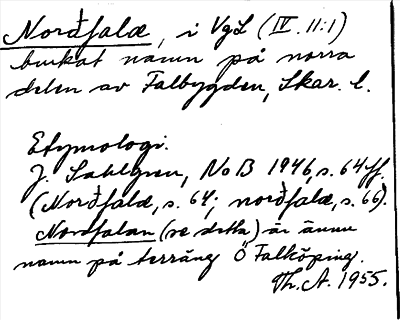 Norđfalæ, i VgL (IV. 11:1)
brukat namn på norra
delen av Falbygden, Skar. l.
Etymologi.
J. Sahlgren, NoB 1946, s. 64 ff.
(Norđfalæ, s. 64; norđfalæ, s. 66).
Nordfalan (se detta) är ännu
namn på terräng Ö Falköping.
Th. A. 1955.